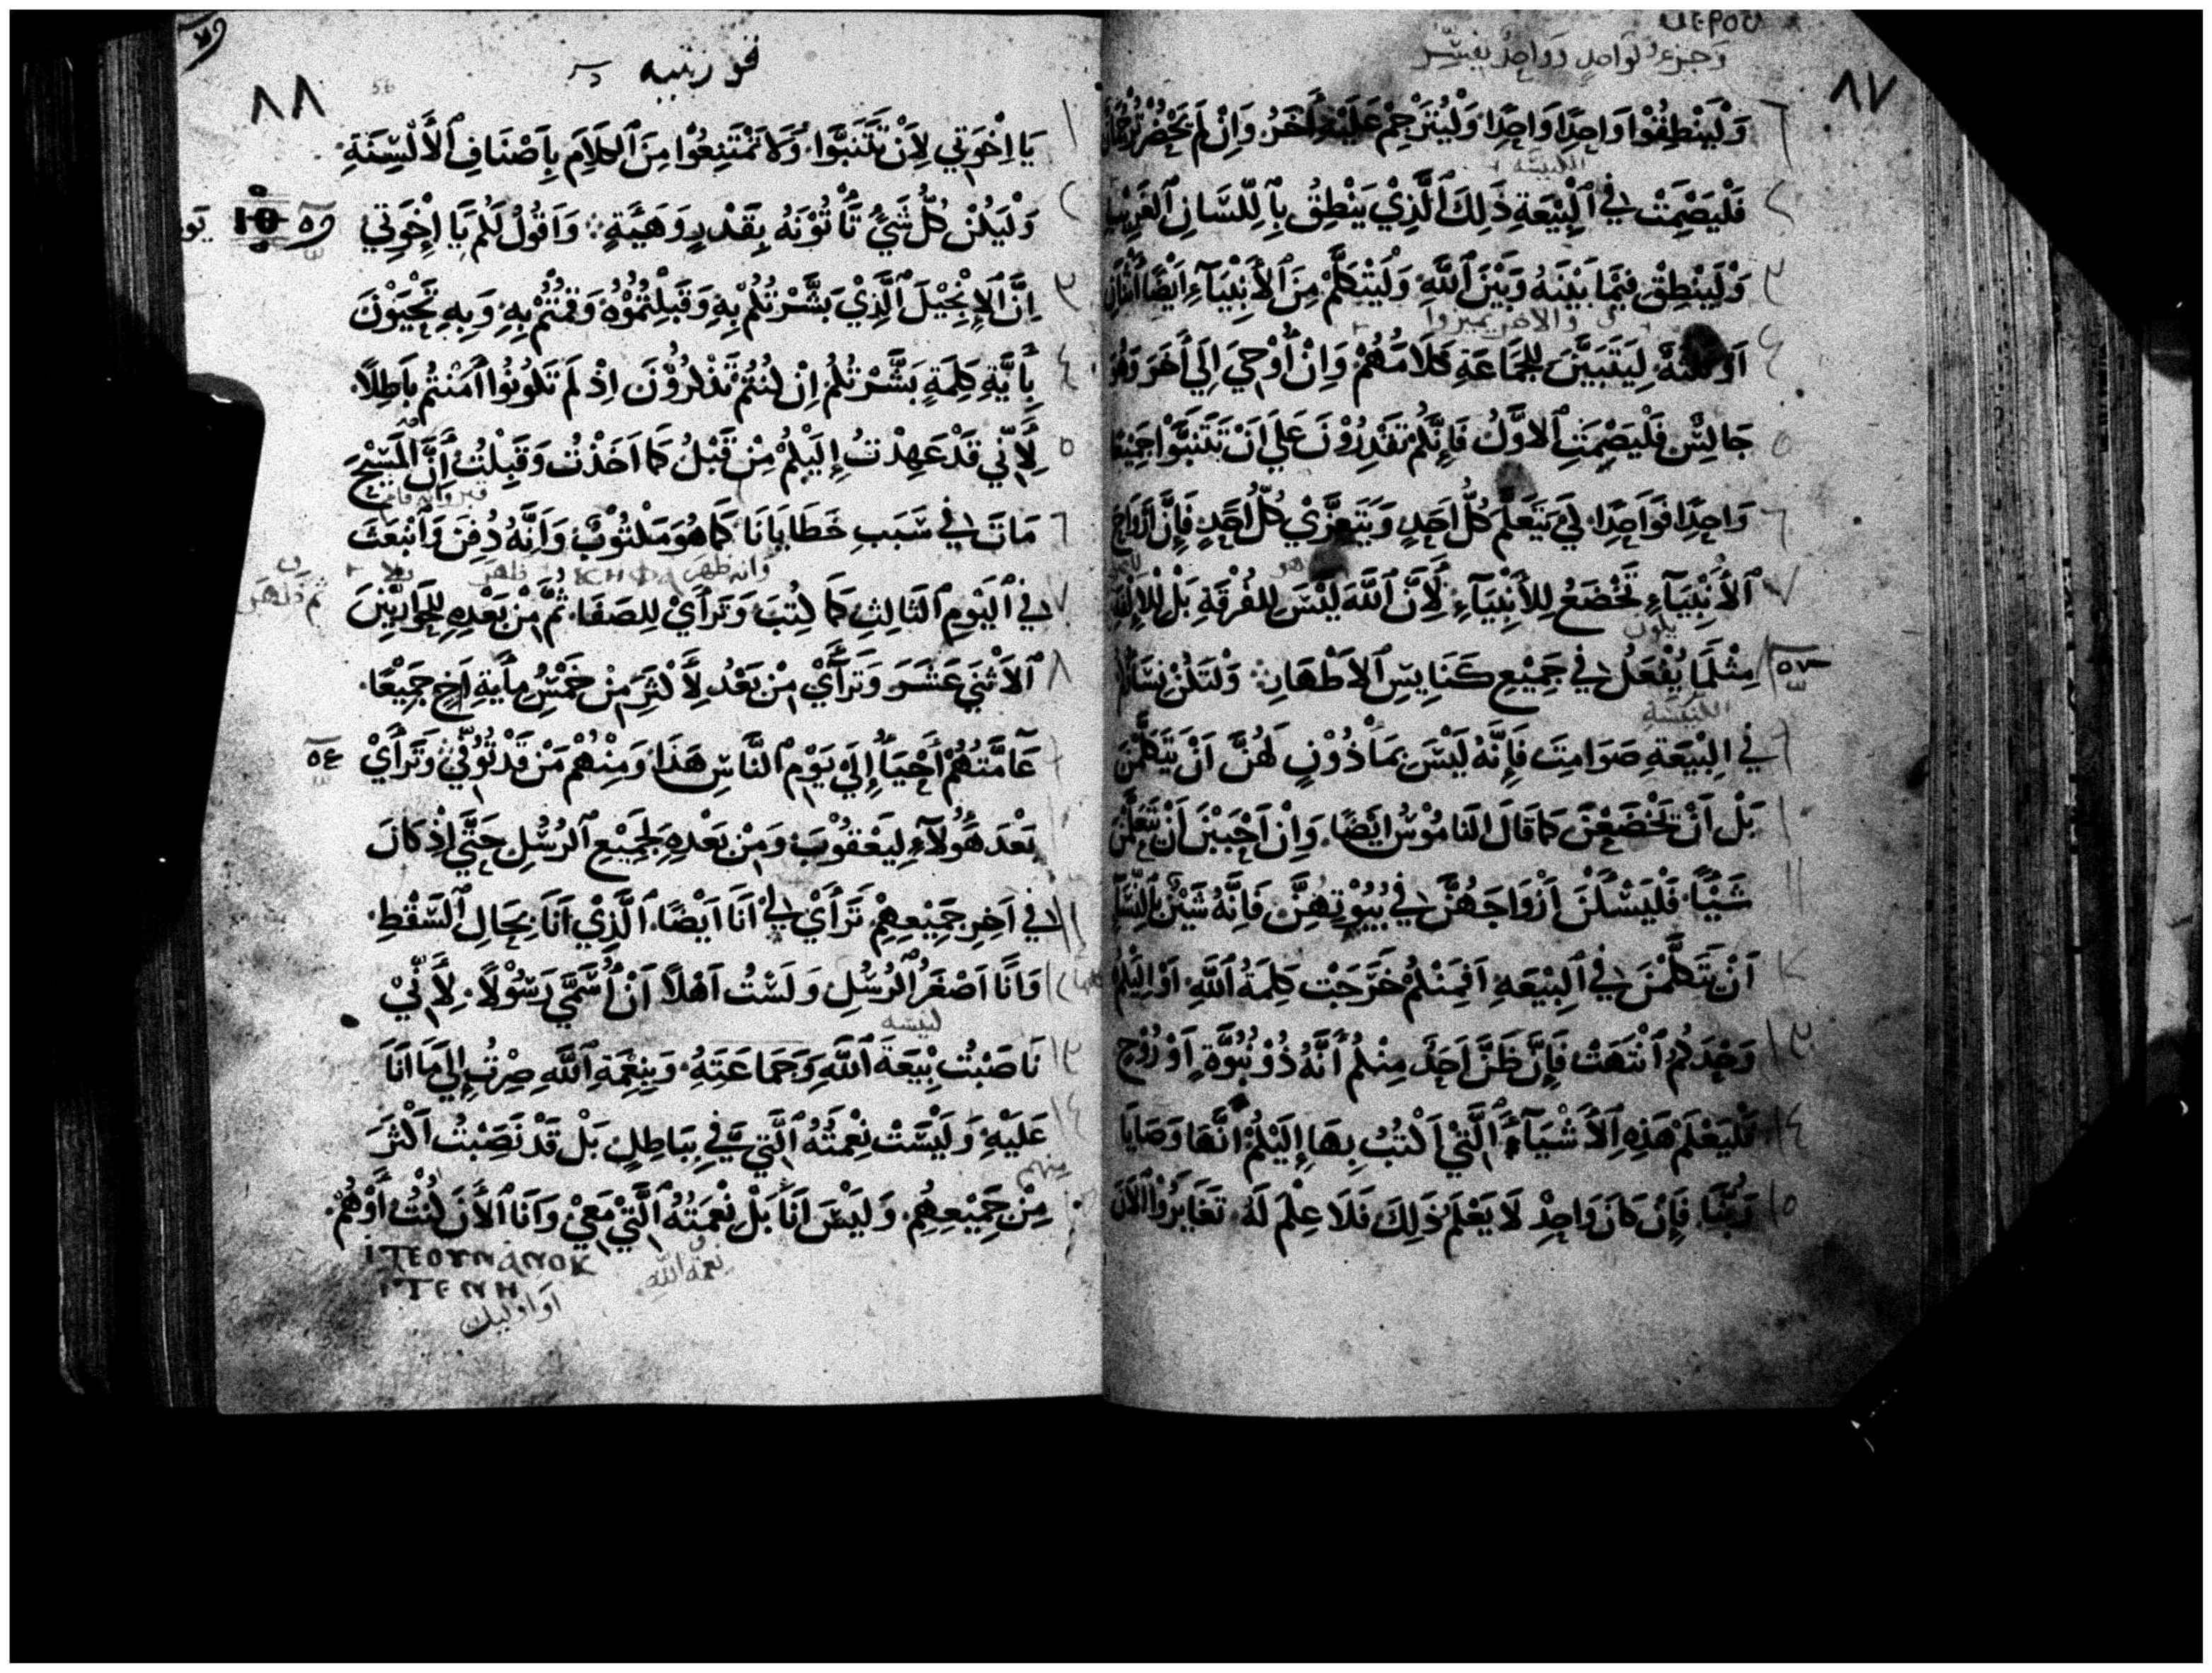 ٨٧
وَلْيَنْطِقُوْا وَاحِدًا وَاحِدًا وَلْيُتَرْجِمْ عَلَيْهِ أَخَرُ وَإِنْ لَمْ يَحْضُرْ
فَلْيَصْمِتْ فِي ٱلْبِيْعَةِ ذَلِكَ ٱلَّذِيْ يَنْطِقُ بِٱللِّسَانِ ٱلغَرِيْبِ
وَلْيَنْطِقْ فِيْمَا بَيْنَهُ وَبَيْنَ ٱللَّهِ وَلْيَتَكَلَّمْ مِنَ ٱلأَنْبِيَآءِ أَيْضًا
أَوْ لِيَتَبَيَّنَ لِلجَمَاعَةِ كَلَامُهُمْ وَإِنْ أُوْحِيَ إِلَي أَخَرَ وَهُوَ
جَالِسٌ فَلْيَصْمِتِ ٱلاَوَّلُ فَإِنَّكُمْ تَقْدِرُوْنَ عَلَي اَنْ تَتَنَبَّوْا جَمِيْعًا
وَاحِدًا فَوَاحِدًا لِكَي يَتَعَلَّمَ كُلُّ اَحَدٍ وَيَتَعَزَّيْ كُلُّ اَحَدٍ فَإِنَّ أَرْوَاحَ
ٱلأَنْبِيَآءِ تَخْضَعُ لِلأَنْبِيَآءِ لِأَنَّ ٱللَّهَ لَيْسَ لِلفُرْقَةِ بَلْ
مِثْلَمَا يُفْعَلُ فِي جَمِيْعِ كَنَايِسِ ٱلاَطْهَارِ وَلْتَكُنْ
فِي البِيْعَةِ صَوَامِتَ فَإِنَّهُ لَيْسَ بِمَأْذُوْنٍ لَهُنَّ اَنْ يَتَكَلَّمْنَ
بَلْ اَنْ تَخْضَعْنَ كَمَا قَالَ النَامُوْسُ ايَضًا وَاِنْ اَحْبَبْنَ اَنْ يَتَعَلَّمْنَ
شَيْئًا فَلْيَسْئَلْنَ اَزْوَاجَهُنَّ فِي بُيُوْتِهِنَّ فَاِنَّهُ شَيْنٌ
اَنْ يَتَكَلَّمْنَ فِي ٱلبِيْعَةِ اَفَمِنْكُمْ خَرَجَتْ كَلِمَةُ ٱللَّهِ اَوْ اِلَيْكُمْ
وَحْدَكُمْ ٱنْتَهَتْ فَإِنْ ظَنَّ اَحَدٌ مِنْكُمْ أَنَّهُ ذُوْ نُبُوَّةٍ اَوْ رُوْحٍ
فَلْيَعْلَمْ هَذِهِ ٱلأَشْيَآءَ ٱلَّتِيْ اَكْتُبُ بِهَا إِلَيْكُمْ اَنَّهَا وَصَايَا
رَبِّنَا فَإِنْ كَانَ وَاحِدٌ لَا يَعْلَمُ ذَلِكَ فَلَا عِلْمَ لَهُ تَغَايَرُوْا ٱلآنَ
٨٨
يَا اِخْوَتِي لِأَنْ تَتَنَبَّوْا وَلَا تَمْتَنِعُوْا مِنَ ٱلكَلَامِ بِاَصْنَافِ ٱلأَلْسِنَةِ
وَلْيَكُنْ كُلُّ شَيْءٍ تَأْتُوْنَهُ بِقَدْرٍ وَهَيْئَةٍ وَاَقُوْلُ لَكُمْ يَا اِخْوَتِي
اِنَّ ٱلإِنْجِيْلَ ٱلَّذِيْ بَشَّرْتُكُمْ بِهِ وَقَبِلْتُمُوْهُ وَقُمْتُمْ بِهِ وَبِهِ تَحْيَوْنَ
بِأَيَّةِ كَلِمَةٍ بَشَّرْتُكُمْ اِنْ كُنْتُمْ تَذْكُرُوْنَ اِذْ لَمْ تَكُوْنُوْا آمَنْتُمْ بَاطِلًا
لِأَنِّي قَدْ عَهِدْتُ إِلَيْكُمْ مِنْ قَبْلُ كَمَا اَخَذْتُ وَقَبِلْتُ أَنَّ المَسِيْحَ
مَاتَ فِي سَبَبِ خَطَايَانَا كَمَا هُوَ مَكْتُوْبٌ وَاَنَّهُ دُفِنَ وَٱنْبَعَثَ
فِي ٱليَوْمِ ٱلثَالِثِ كَمَا كُتِبَ وَتَرَأَيْ لِلصَفَا ثُمَّ مِنْ بَعْدِهِ لِلحَوَارِيِّيْنَ
ٱلاَثْنَي عَشَرَ وَتَرَأَيْ مِنْ بَعْدُ لِأَكْثَرَ مِنْ خَمْسِ مِأَيَةِ اَخٍ جَمِيْعًا
عَامَّتُهُمْ أَحْيَآءٌ إِلَي يَوْمِ ٱلنَّاسِ هَذَا وَمِنْهُمْ مَنْ قَدْ تُوُفِّيَ وَتَرَأَيْ
بَعْدَ هَؤُلَآءِ لِيَعْقُوْبَ وَمِنْ بَعْدِهِ لِجَمِيْعِ ٱلرُسُلِ حَتَّي اِذْ كَانَ
فِي اَخِرِ جَمِيْعِهِمْ تَرَأَيْ لِي اَنَا اَيْضًا ٱلَّذِيْ اَنَا بِحَالِ ٱلسَقْطِ
وَاَنَا اَصْغَرُ ٱلرُسُلِ وَلَسْتُ اَهْلًا اَنْ أُسَمَّي رَسُوْلًا لِأَنِّيْ
نَاصَبْتُ بِيْعَةَ ٱللَّهِ وَجَمَاعَتَهُ وَبِنِعْمَةِ ٱللَّهِ صِرْتُ إِلَي مَا اَنَا
عَلَيْهِ وَلَيْسَتْ نِعْمَتُهُ ٱلَّتِي فِيَّ بِبَاطِلٍ بَلْ قَدْ نَصِبْتُ اَكْثَرَ
مِنْ جَمِيْعِهِمْ وَلَيْسَ اَنَا بَلْ نِعْمَتُهُ ٱلَّتِيْ مَعِيْ وَاَنَا ٱلآنَ كُنْتُ أَوْ هُمْ
ⲓⲧⲉⲟⲩⲛⲁⲛⲟⲕ
ⲓⲧⲉⲛⲏ
نعمة الله